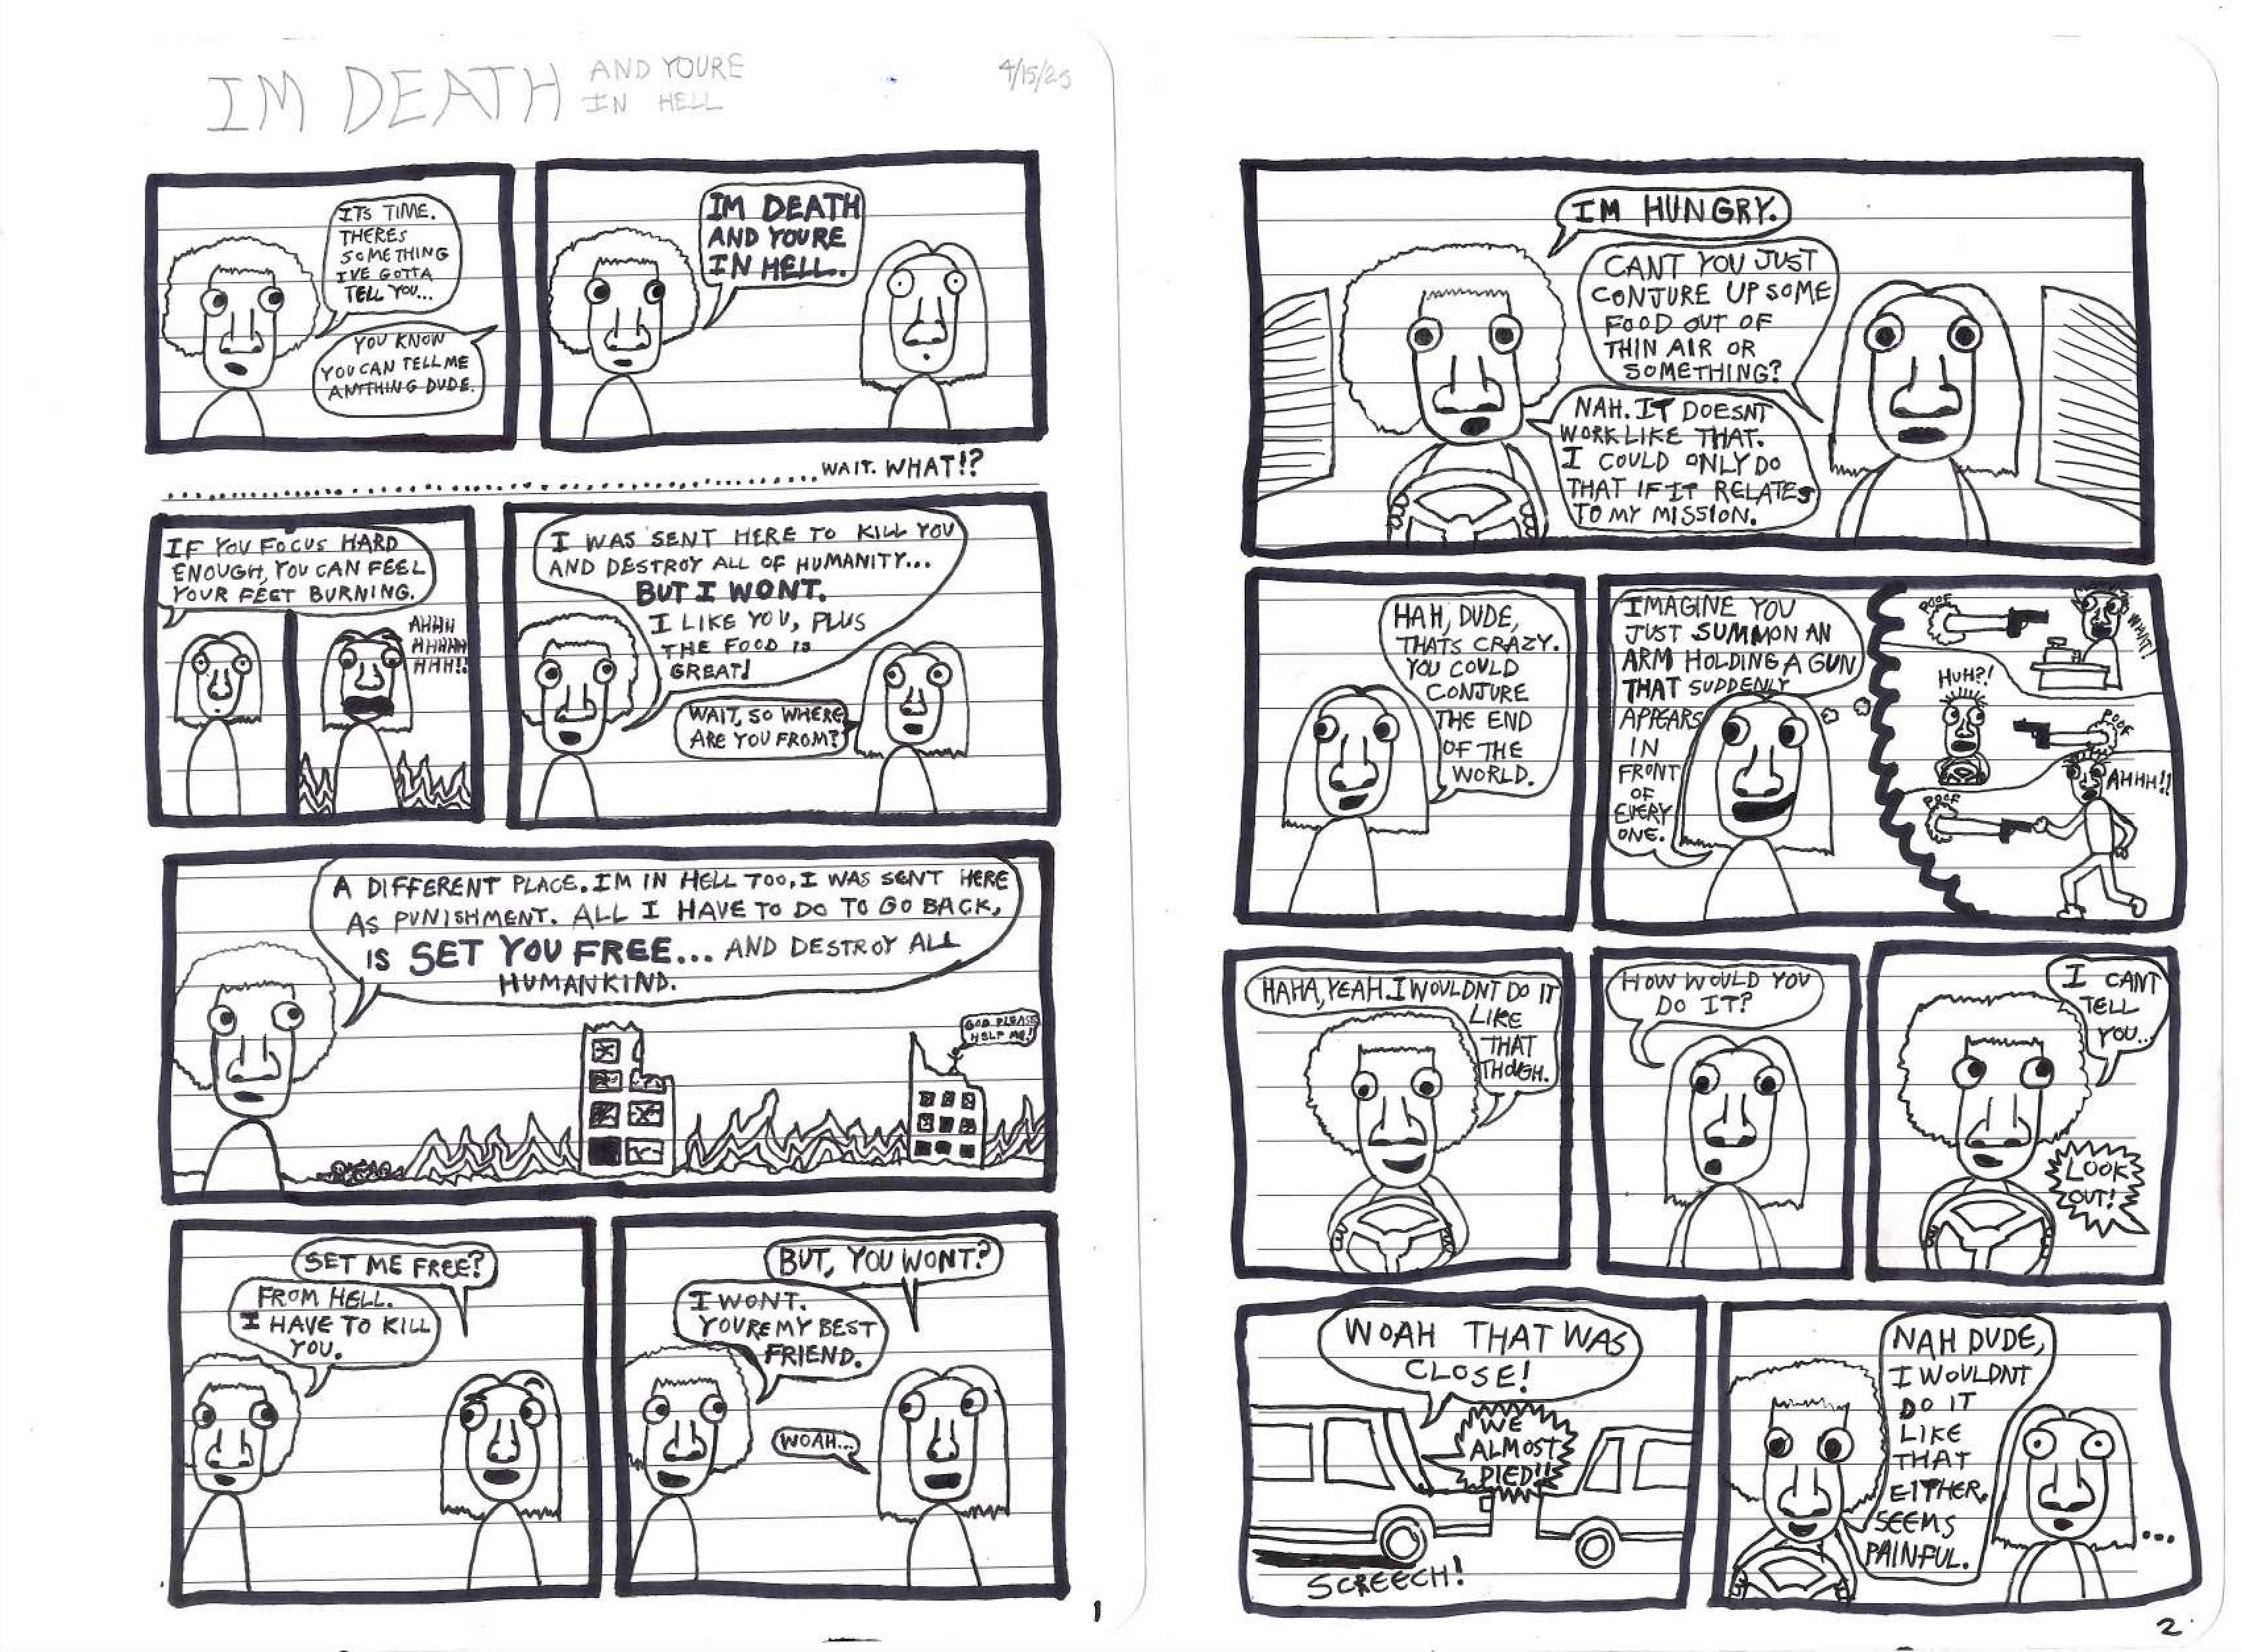 IM DEATH AND YOURE
IN HELL
4/15/25
ITS TIME.
THERES
SOMETHING
IVE GOTTA
TELL YOU...
YOU KNOW
YOU CAN TELL ME
ANYTHING DUDE.
IM DEATH
AND YOURE
IN HELL..
WAIT. WHAT!?
IF YOU FOCUS HARD
ENOUGH, YOU CAN FEEL
YOUR FEET BURNING.
AHHH
HHHHH
HHH!!
I WAS SENT HERE TO KILL YOU
AND DESTROY ALL OF HUMANITY...
BUT I WONT.
I LIKE YOU, PLUS
THE FOOD IS
GREAT!
WAIT, SO WHERE
ARE YOU FROM?
A DIFFERENT PLACE. IM IN HELL TOO. I WAS SENT HERE
AS PUNISHMENT. ALL I HAVE TO DO TO GO BACK,
IS SET YOU FREE... AND DESTROY ALL
HUMANKIND.
GOD PLEASE
HELP ME!
SET ME FREE?
FROM HELL.
I HAVE TO KILL
YOU.
BUT, YOU WONT?
I WONT.
YOURE MY BEST
FRIEND.
WOAH...
1
IM HUNGRY.
CANT YOU JUST
CONJURE UP SOME
FOOD OUT OF
THIN AIR OR
SOMETHING?
NAH. IT DOESNT
WORK LIKE THAT.
I COULD ONLY DO
THAT IF IT RELATES
TO MY MISSION.
HAH, DUDE,
THATS CRAZY.
YOU COULD
CONJURE
THE END
OF THE
WORLD.
IMAGINE YOU
JUST SUMMON AN
ARM HOLDING A GUN
THAT SUDDENLY
APPEARS
IN
FRONT
OF
EVERY
ONE.
POOF
WHAT!
HUH?!
POOF
AHHH!!
POOF
HAHA, YEAH. I WOULDNT DO IT
LIKE
THAT
THOUGH.
HOW WOULD YOU
DO IT?
I CANT
TELL
YOU..
LOOK
OUT!
WOAH THAT WAS
CLOSE!
WE
ALMOST
DIED!!
SCREECH!
NAH DUDE,
I WOULDNT
DO IT
LIKE
THAT
EITHER.
SEEMS
PAINFUL.
...
2